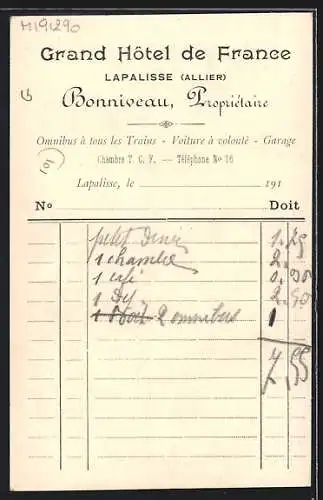 M191290
Grand Hôtel de France
LAPALISSE (ALLIER)
Bonniveau, Propriétaire
Omnibus à tous les Trains - Voiture à volonté - Garage
Chambre T. C. F. — Téléphone No 16
Lapalisse, le 191
No Doit
petit 1.25
1 chambre 2.
1 café
1 2.
1 2 omnibus 1
7,55